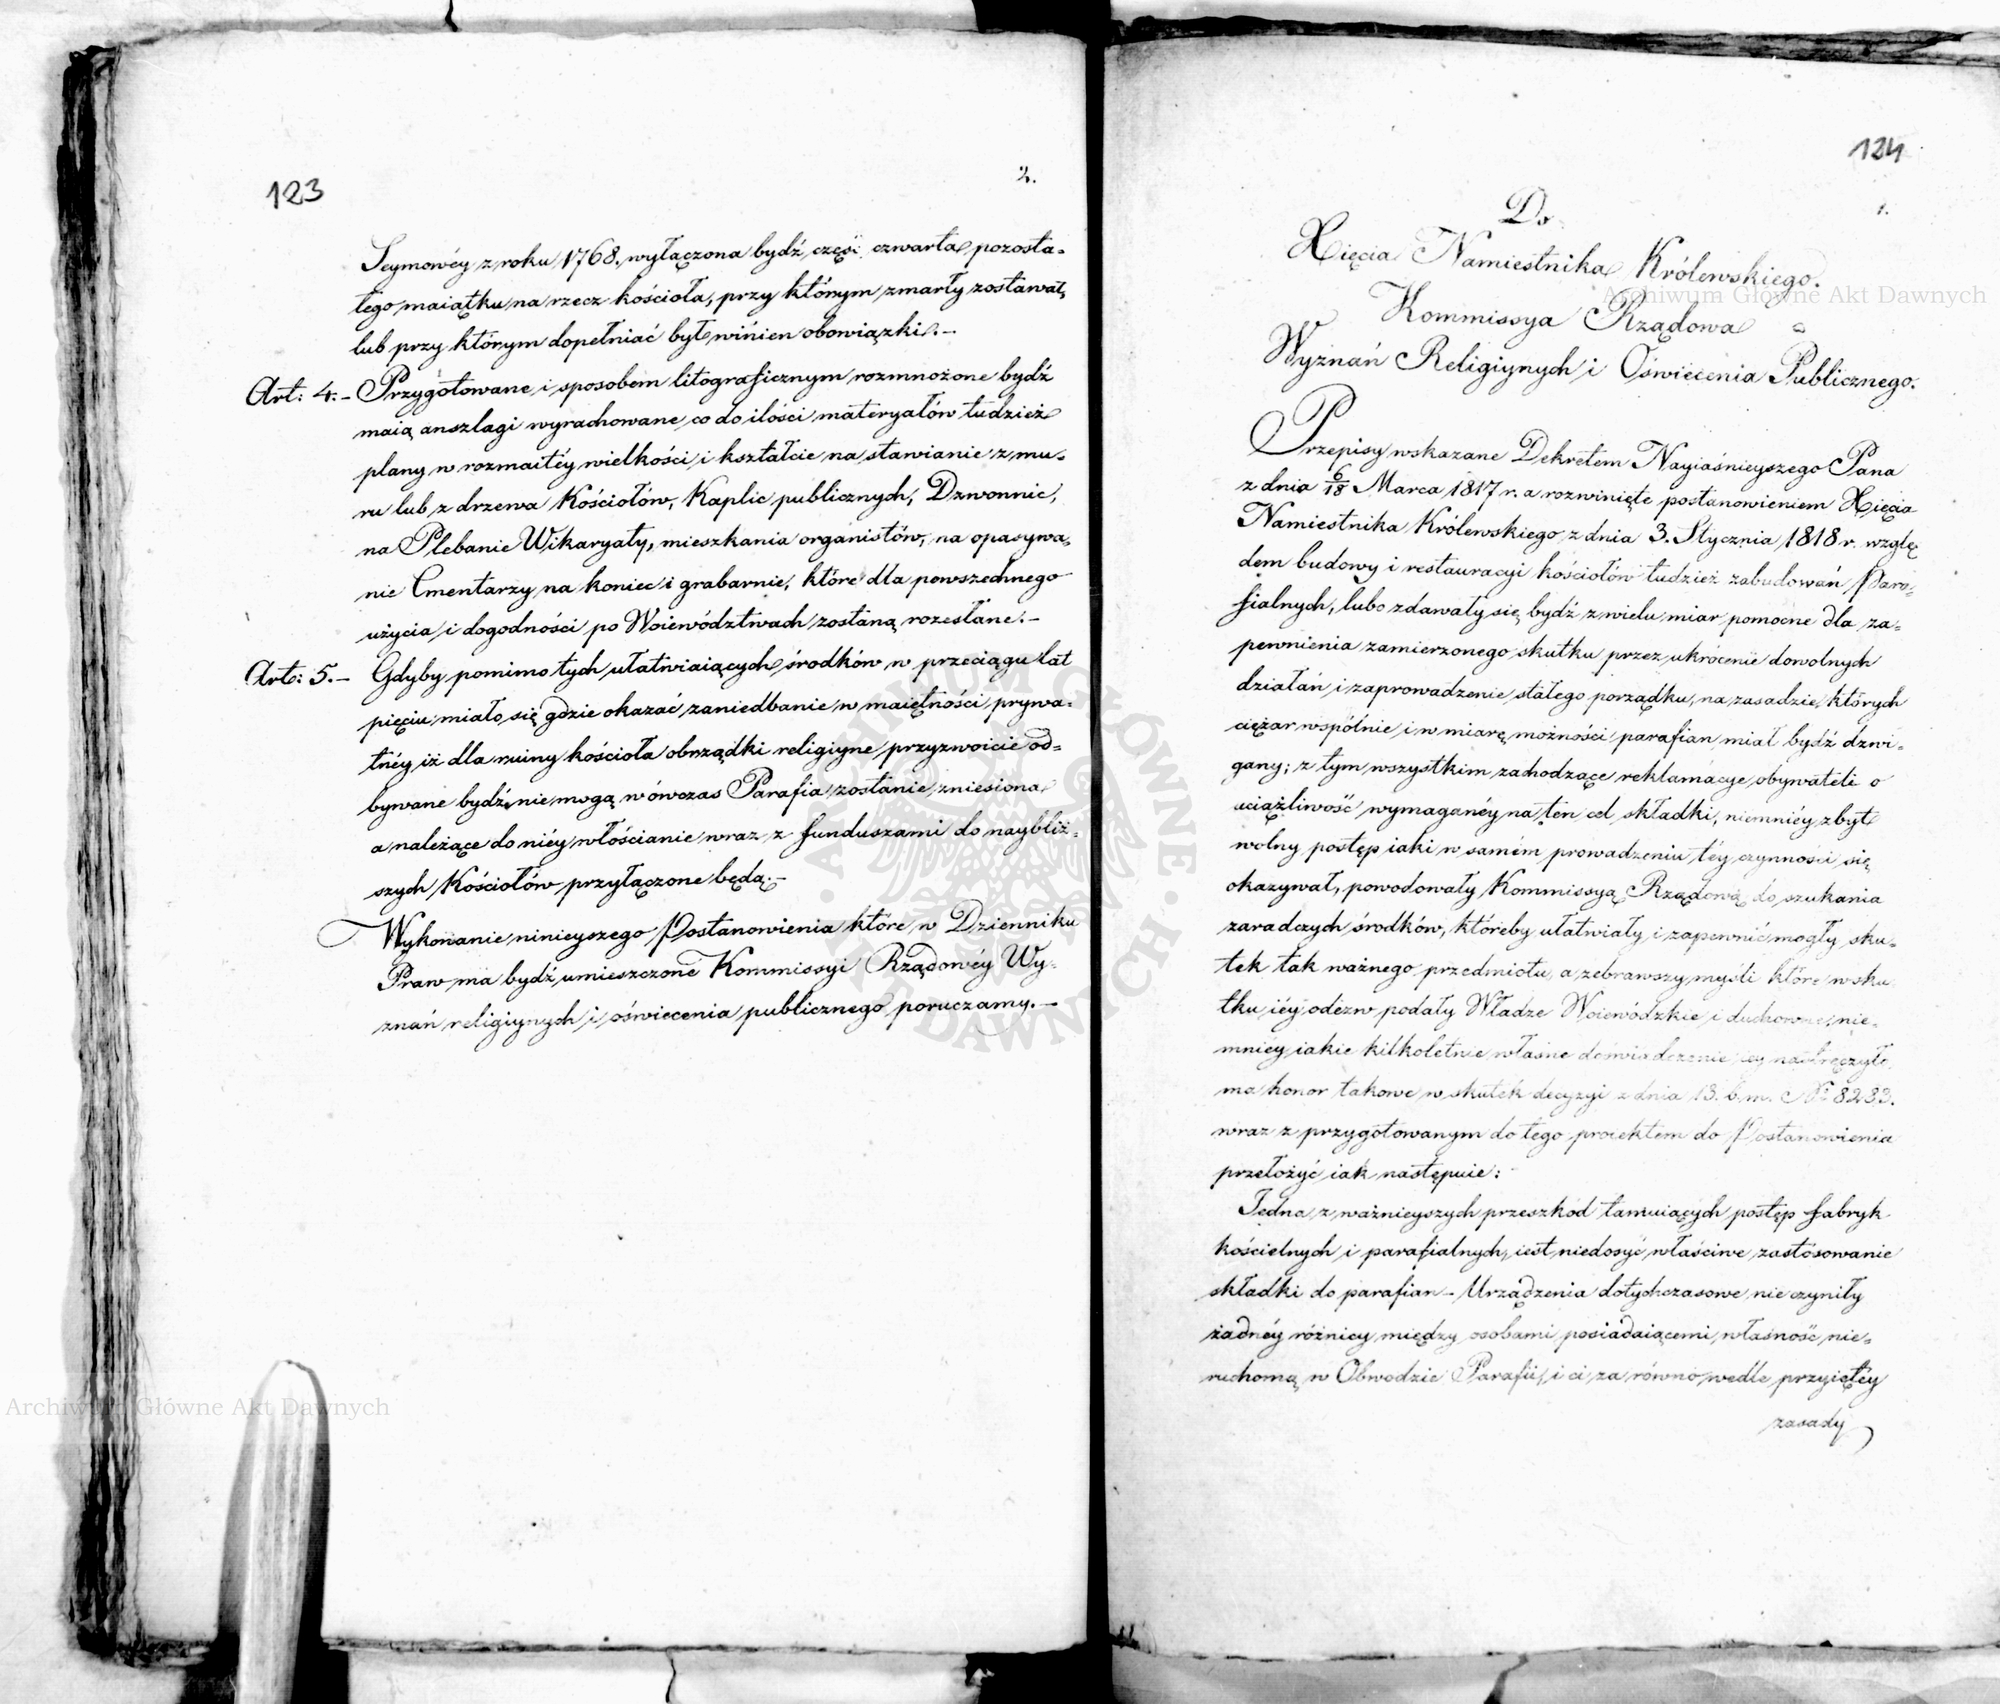 123
2.
Seymowéy z roku 1768. wyłączona bydź część czwarta pozosta=
łego maiątku na rzecz kościoła, przy którym zmarły zostawał,
lub przy którym dopełniać był winien obowiązki.–
Art: 4.– Przygotowane i sposobem litograficznym rozmnożone bydź
maią anszlagi wyrachowane co do ilości materyałów tudzież
plany w rozmaitéy wielkości i kształcie na stawianie z mu=
ru lub z drzewa Kościołów, Kaplic publicznych, Dzwonnic,
na Plebanie Wikaryaty, mieszkania organistów, na opasywa=
nie Cmentarzy na koniec i grabarnie, które dla powszechnego
użycia i dogodności po Woiewództwach zostaną rozesłane.–
Art: 5.– Gdyby pomimo tych ułatwiaiących środków w przeciągu lat
pięciu miało się gdzie okazać zaniedbanie w maiętności prywa=
tnéy iż dla ruiny kościoła obrządki religiyne przyzwoicie od=
bywane bydź nie mogą wówczas Parafia zostanie zniesiona
a należące do niéy włościanie wraz z funduszami do naybliż=
szych Kościołów przyłączone będą.–
Wykonanie ninieyszego Postanowienia które w Dzienniku
Praw ma bydź umieszczone Kommissyi Rządowéy Wy=
znań religiynych i oświecenia publicznego poruczamy.–
124
1.
Do
Xięcia Namiestnika Królewskiego.
Kommissya Rządowa
Wyznań Religiynych i Oświecenia Publicznego.
Przepisy wskazane Dekretem Nayiaśnieyszego Pana
z dnia 6/18 Marca 1817 r. a rozwinięte postanowieniem Xięcia
Namiestnika Królewskiego z dnia 3. Stycznia 1818 r. wzglę
dem budowy i restauracyi kościołów tudzież zabudowań Para=
fialnych, lubo zdawały się bydź z wielu miar pomocne dla za=
pewnienia zamierzonego skutku przez ukrócenie dowolnych
działań i zaprowadzenie stałego porządku, na zasadzie których
ciężar wspólnie i w miarę możności parafian miał bydź dzwi=
gany; z tym wszystkim zachodzące reklamacye obywateli o
uciążliwość wymaganéy na ten cel składki, niemniéy zbyt
wolny postęp iaki w samém prowadzeniu téy czynności się
okazywał, powodowały Kommissyą Rządową do szukania
zaradczych środków, któreby ułatwiały i zapewnić mogły sku=
tek tak ważnego przedmiotu, a zebrawszy myśli które w sku
tku iéy odezw podały Władze Woiewódzkie i duchowne, nie=
mniey iakie kilkoletnie własne doświadczenie iey nastręczyło
ma honor takowe w skutek decyzyi z dnia 13. b. m. N° 8283.
wraz z przygotowanym do tego proiektem do Postanowienia
przełożyć iak następuie:
Jedna z ważnieyszych przeszkód tamuiących postęp fabryk
kościelnych i parafialnych, iest niedosyć właściwe zastósowanie
składki do parafian – Urządzenia dotychczasowe nie czyniły
żadnéy różnicy między osobami posiadaiącemi własność nie=
ruchomą w Obwodzie Parafii, i ci za równo wedle przyiętéy
zasady
Archiwum Główne Akt Dawnych
Archiwum Główne Akt Dawnych
ARCHIWUM GŁÓWNE AKT DAWNYCH